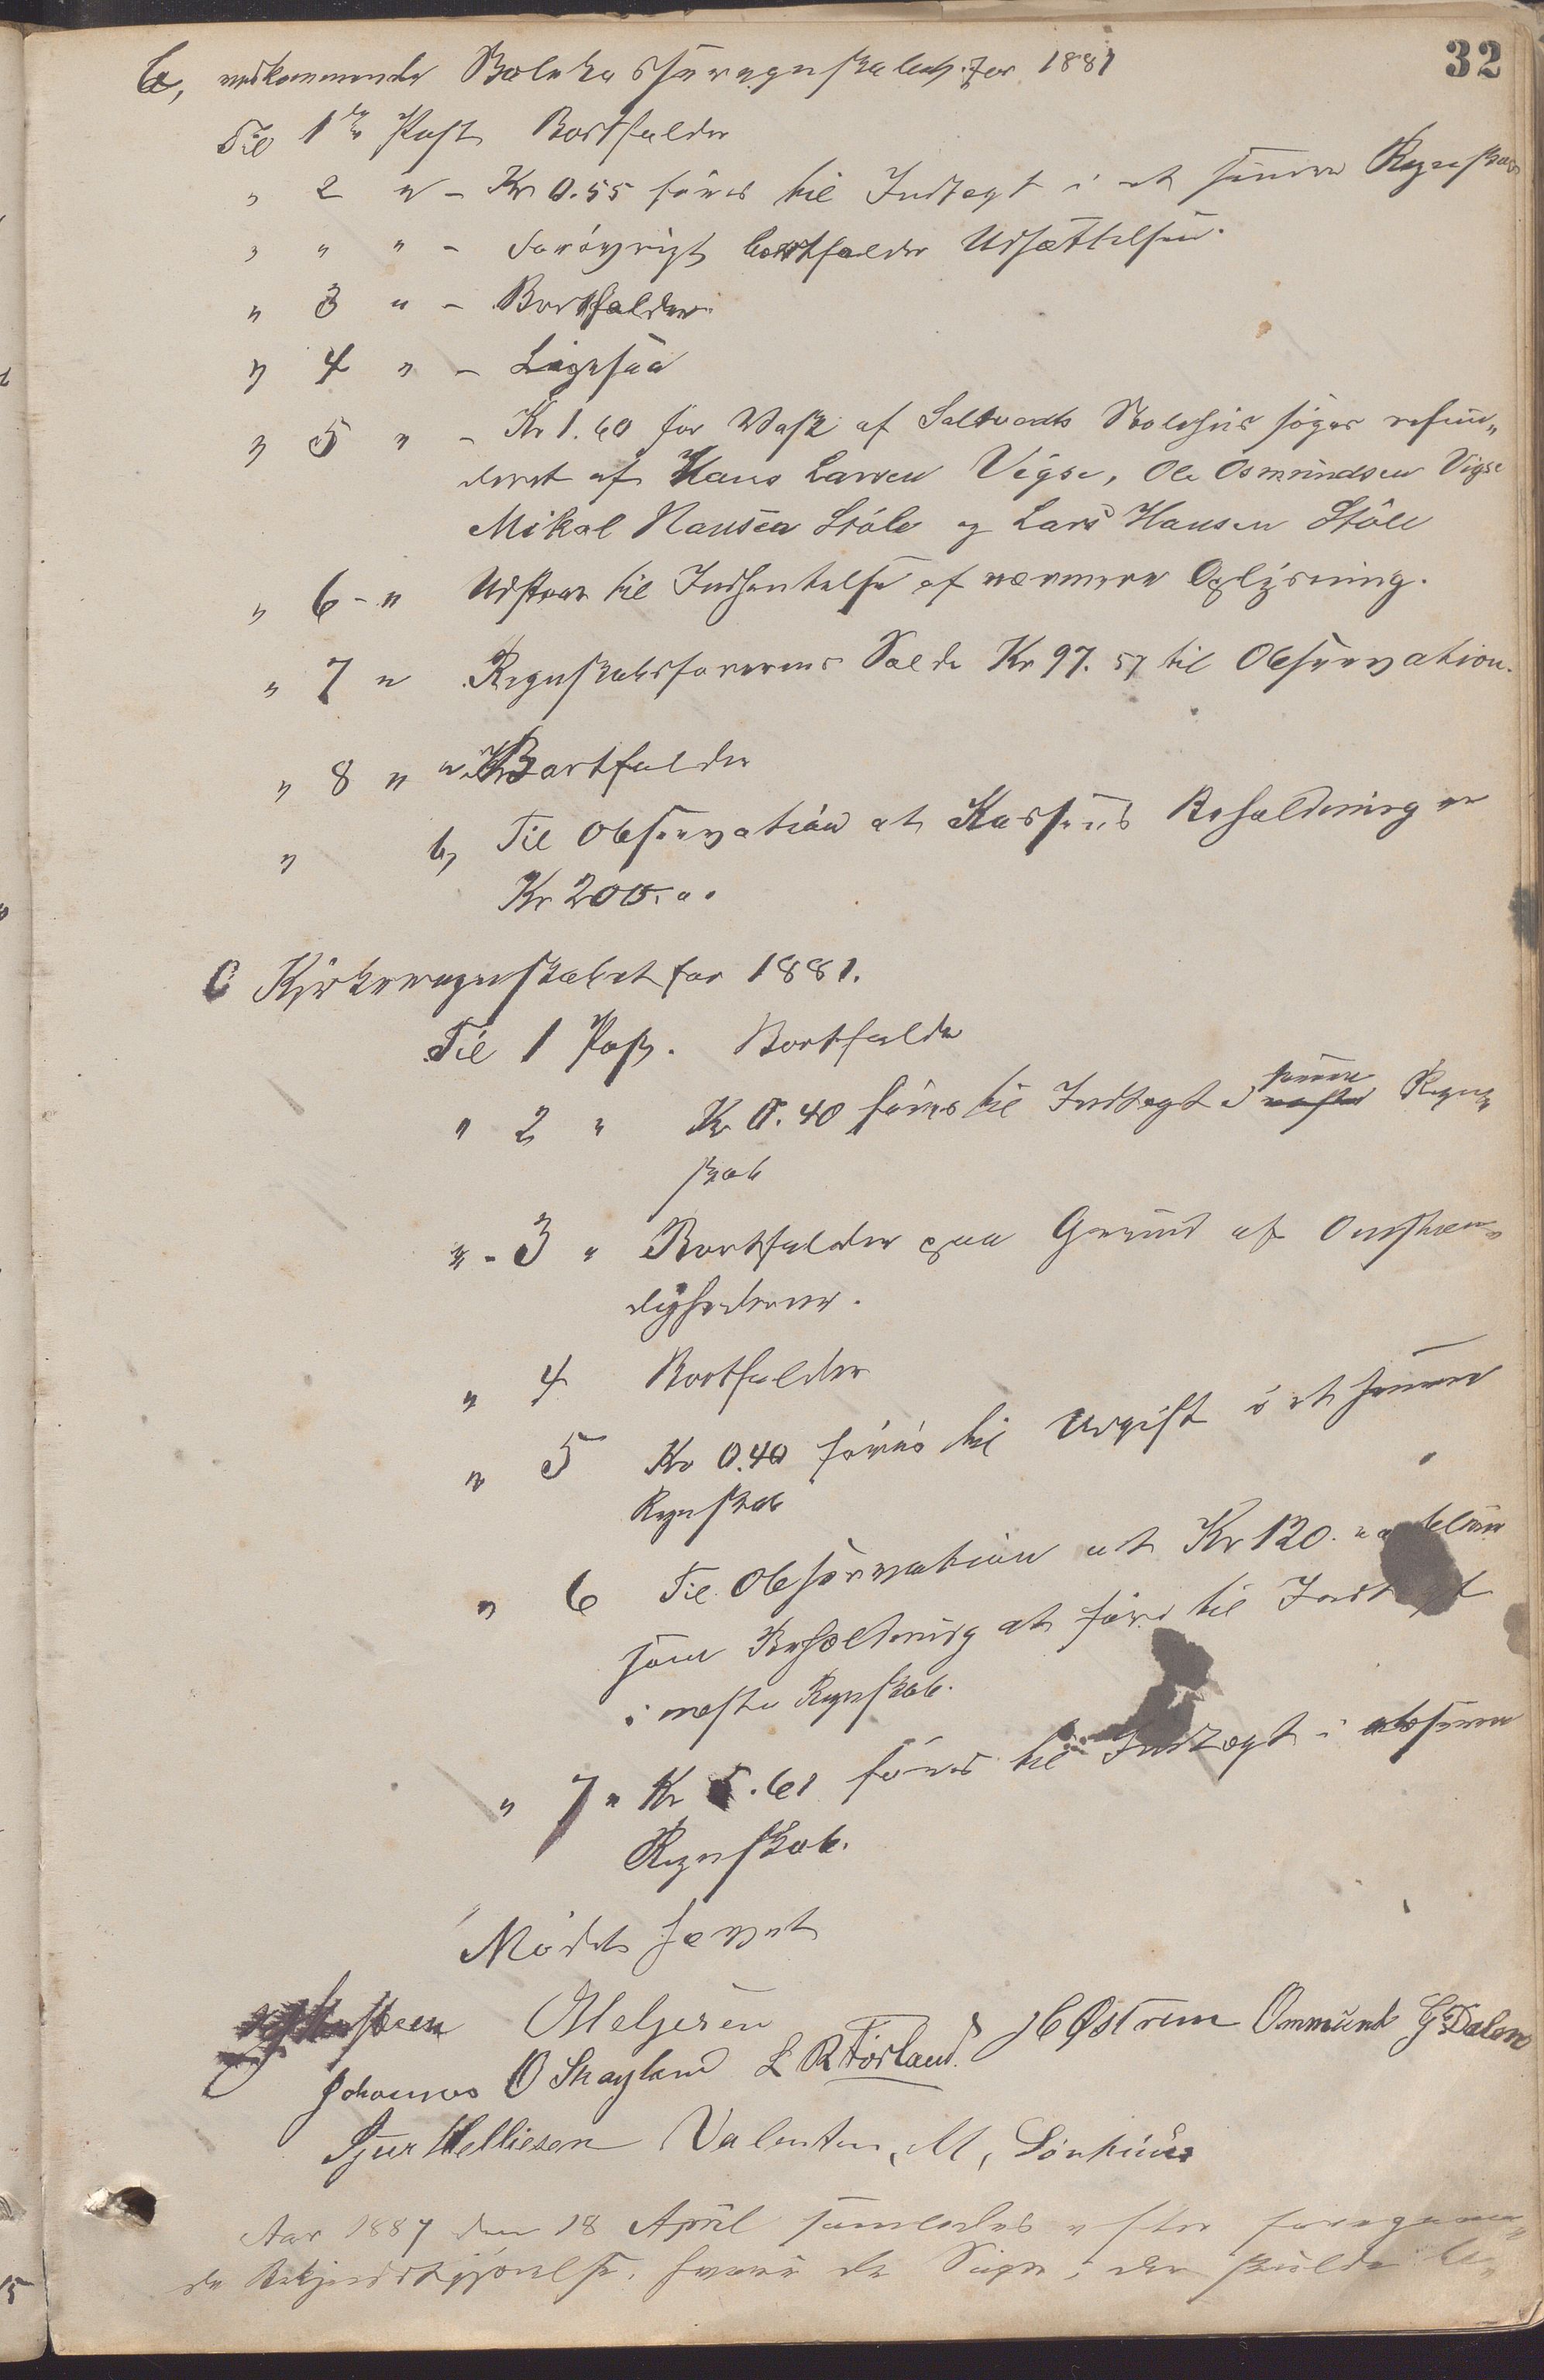 32
b, vedkommende Skolekasseregnskabet for 1881
Til 1ste Post Bortfalder
" 2 " - Kr 0.55 føres til Indtægt i et senere Regnskab
" " " - Forøvrigt bortfalder Udsættelsen.
" 3 " - Bortfalder
" 4 " - Ligesaa
" 5 " - Kr 1.60 for Vask af Saltvedts Skolehus søges refun„
deret af Hans Larsen Vigse, Ole Osmundsen Vigse
Mikal Hansen Støle og Lars Hansen Støle
" 6 - " Udstaar til Indhentelse af nærmere Oplysning.
" 7 " Regnskabsførerens Saldo Kr 97.57 til Observation.
" 8 " a, Bortfalder
" b, Til Observation at Kassens Beholdning er
Kr 200.00
C Kirkeregnskabet for 1881.
Til 1 Post. Bortfalder
" 2 " Kr 0.40 føres til Indtægt i senere Regn„
skab
" - 3 " Bortfalder paa Grund af Omstæn„
dighederne.
" 4 Bortfalder
" 5 Kr 0.40 føres til Udgift i et senere
Regnskab
" 6 Til Observation at Kr 120. bliver
som Beholdning at føre til Indtægt
i næste Regnskab.
" 7 " Kr 5.61 føres til Indtægt i et senere
Regnskab.
Mødet hævet
OHelgesen HØstrem Ommund G. Dalen
Johannes O Skayland L R Førland
Sjur Helliesen Valentin, M, Sørhuus
Aar 1887 den 18 April samledes efter foregaaen„
de Bekjendtgjørelse, Herredsstyret, der skulde be„